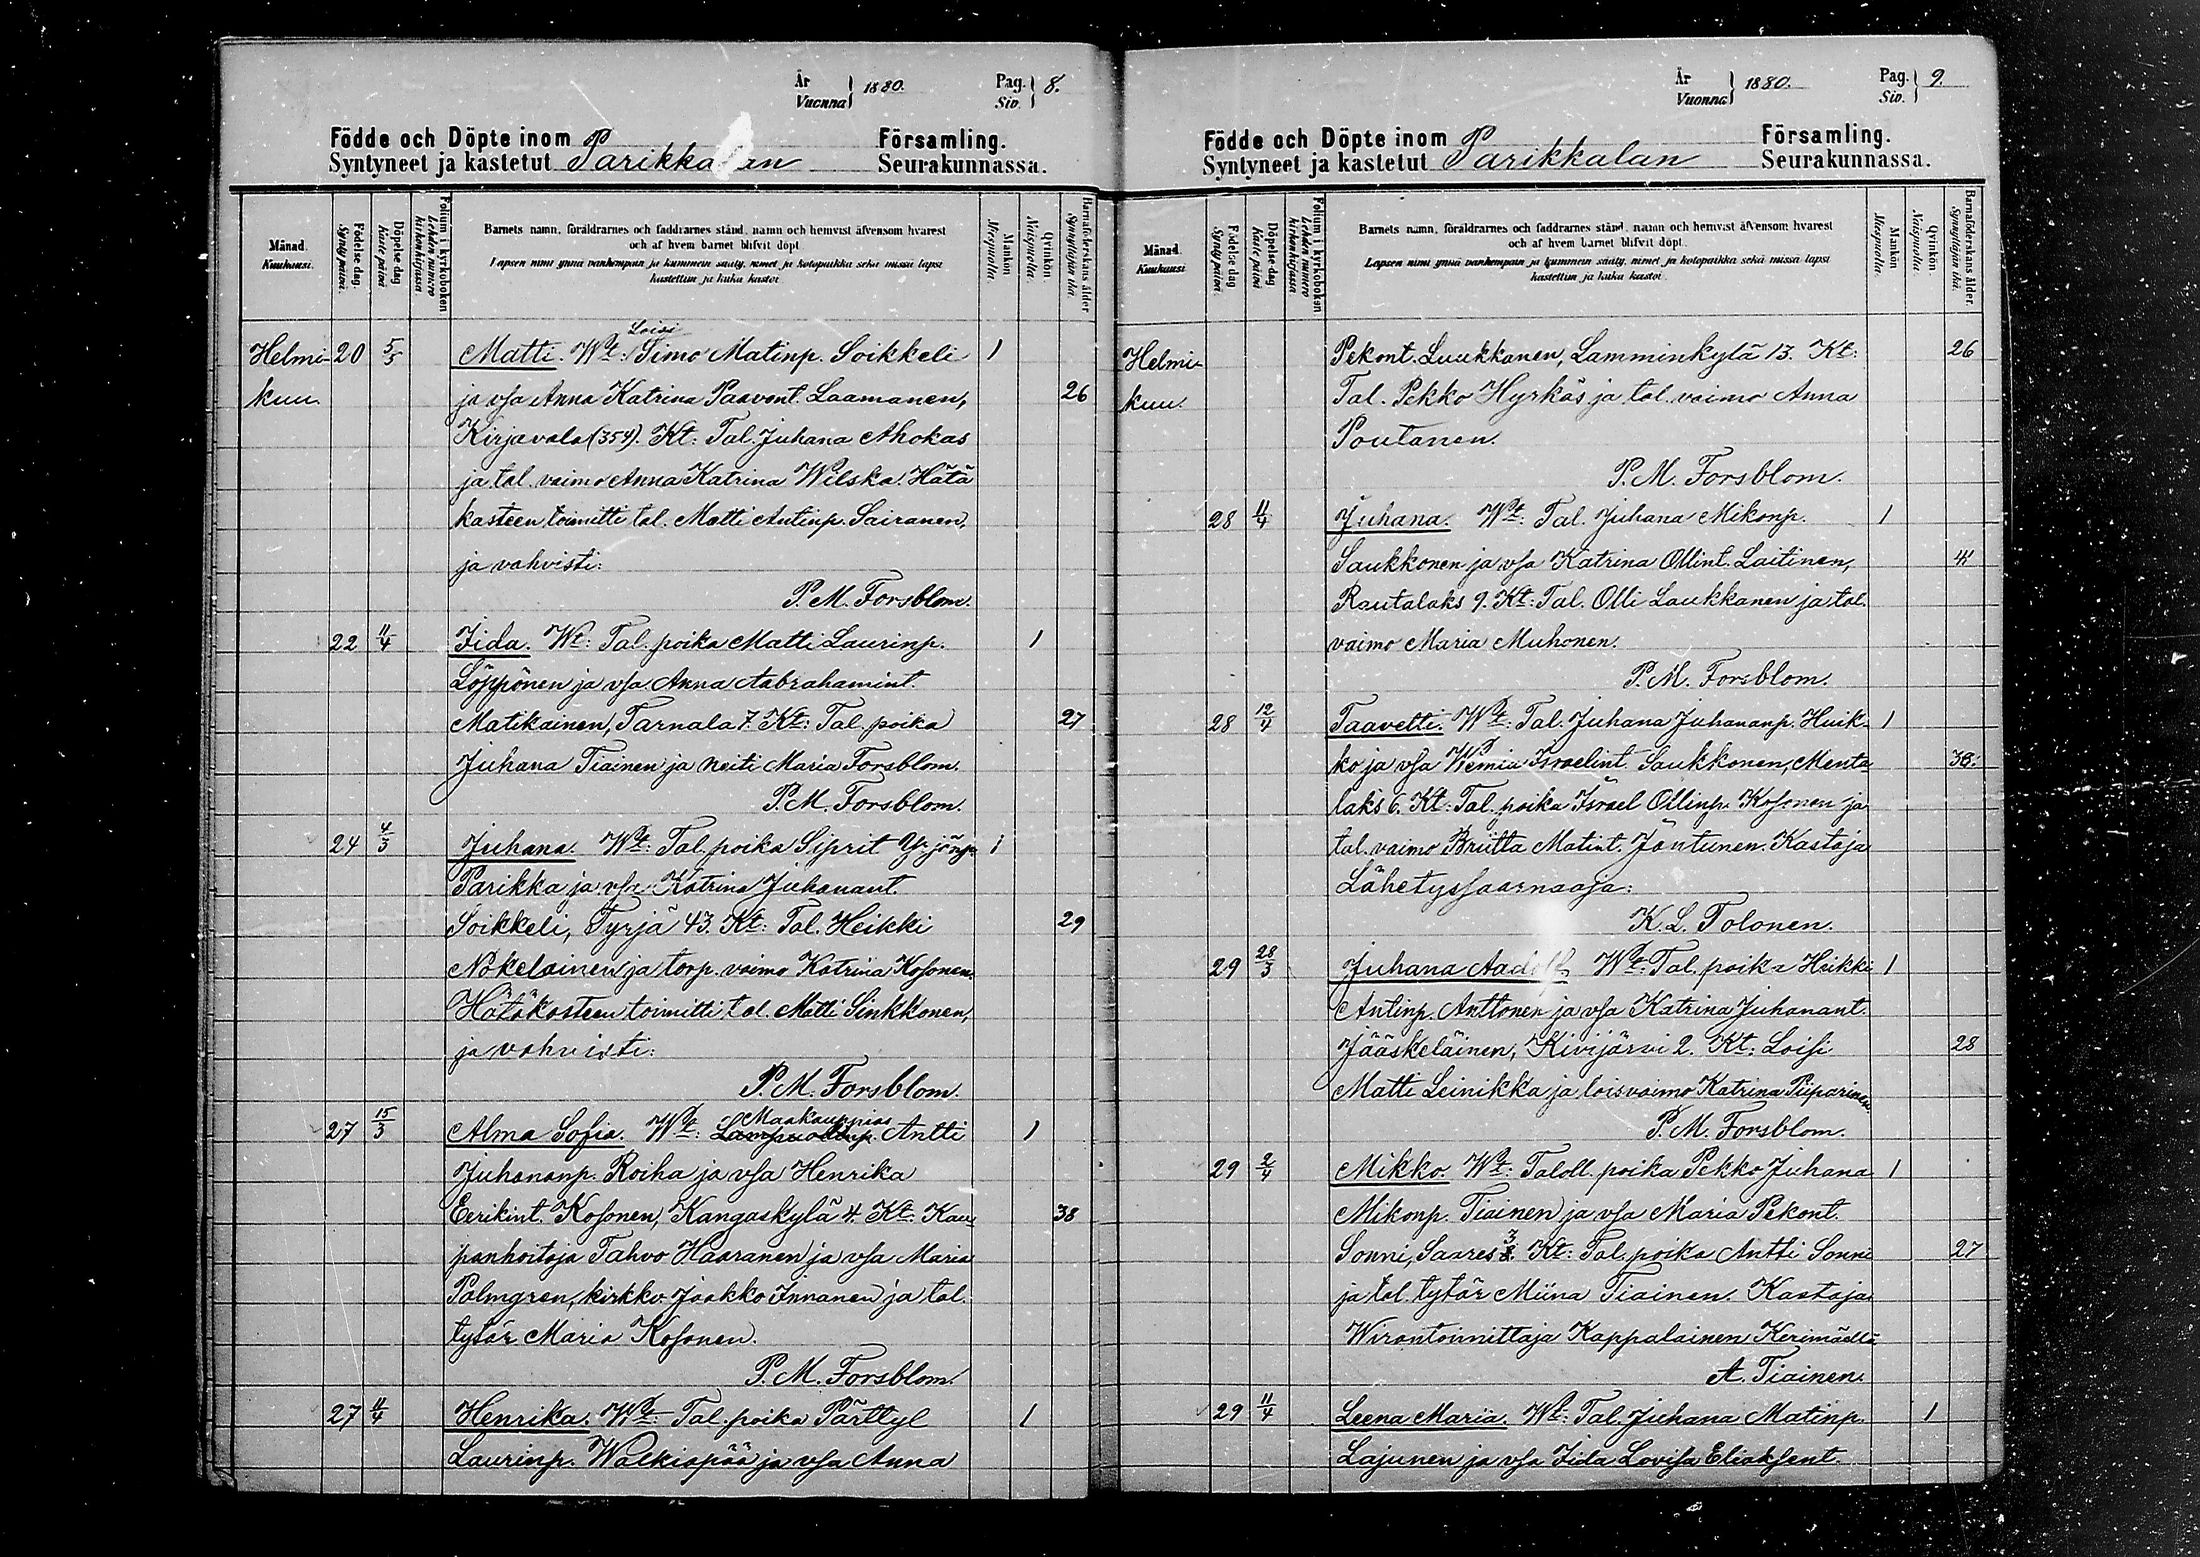 År
Vuonna
1880.
Pag.
Siv.
8.
Födde och Döpte inom
Syntyneet ja kastetut Parikkalan
Församling.
Seurakunnassa.
Månad.
Kuukausi.
Födelse dag.
Synty päivä.
Döpelse dag
Kaste päivä
Folium i kyrkoboken
Lehden numero kirkonkirjassa
Barnets namn, föräldrarnes och faddrarnes stånd, namn och hemvist äfvensom hvarest
och af hvem barnet blifvit döpt.
Lapsen nimi ynnä vanhempain ja kummein sääty, nimet ja kotopaikka sekä missä lapsi
kastettiin ja kuka kastoi
Mankön
Miespuolia.
Qvinkön.
Naispuolia.
Barnaföderskans ålder
Synnyttäjän ikä.
Helmi- 20 5/5 Matti. Wt: Loisi Simo Matinp. Soikkeli 1
kuu. ja vsa Anna Katrina Paavont. Laamanen, 26
Kirjavala (354). Kt: Tal. Juhana Ahokas
ja tal. vaimo Anna Katrina Wilska. Hätä
kasteen toimitti tal. Matti Antinp. Sairanen,
ja vahvisti:
P. M. Forsblom.
22 11/4 Iida. Wt: Tal. poika Matti Laurinp. 1
Löppönen ja vsa Anna Aabrahamint.
Matikainen, Tarnala 7. Kt: Tal. poika 27
Juhana Tiainen ja neiti Maria Forsblom.
P. M. Forsblom.
24 4/3 Juhana. Wt: Tal. poika Siprit Yrjönp. 1
Parikka ja vsa Katrina Juhanant.
Soikkeli, Tyrjä 43. Kt: Tal. Heikki 29
Nokelainen ja torp. vaimo Katrina Kosonen.
Hätäkasteen toimitti tal. Matti Sinkkonen,
ja vahvisti:
P. M. Forsblom.
27 15/3 Alma Sofia. Wt: Maakauppias Antti 1
Juhananp. Roiha ja vsa Henrika
Eerikint. Kosonen, Kangaskylä 4. Kt: Kau
panhoitaja Tahvo Haaranen ja vsa Maria 38
Palmgren, kirkkov. Jaakko Innanen ja tal.
tytär Maria Kosonen.
P. M. Forsblom.
27 11/4 Henrika. Wt: Tal. poika Pärttyl 1
Laurinp. Walkiapää ja vsa Anna
År
Vuonna
1880.
Pag.
Siv.
9.
Födde och Döpte inom
Syntyneet ja kastetut Parikkalan
Församling.
Seurakunnassa.
Månad.
Kuukausi.
Födelse dag
Synty päivä.
Döpelse-dag
Kaste päivä
Folium i kyrkoboken
Lehden numero kirkonkirjassa
Barnets namn, föräldrarnes och faddrarnes stånd, namn och hemvist äfvensom hvarest
och af hvem barnet blifvit döpt.
Lapsen nimi ynnä vanhempain ja kummein sääty, nimet ja kotopaikka sekä missä lapsi
kastettiin ja kuka kastoi.
Mankön
Miespuolia.
Qvinkön.
Naispuolia.
Barnaföderskans ålder.
Synnyttäjän ikä.
Helmi- Pekont. Luukkanen, Lamminkylä 13. Kt: 26
kuu. Tal. Pekko Hyrkäs ja tal. vaimo Anna
Poutanen.
P. M. Forsblom.
28 11/4 Juhana. Wt: Tal. Juhana Mikonp. 1
Saukkonen ja vsa Katrina Ollint. Laitinen, 41
Rautalaks 9. Kt: Tal. Olli Laukkanen ja tal.
vaimo Maria Muhonen.
P. M. Forsblom.
28 12/4 Taavetti. Wt: Tal. Juhana Juhananp. Huik- 1
ko ja vsa Wemia Israelint. Saukkonen, Menta
laks 6. Kt: Tal. poika Israel Ollinp. Kosonen ja
tal. vaimo Briitta Matint. Jöntunen. Kastaja
Lähetyssaarnaaja:
K. L. Tolonen.
29 28/3 Juhana Aadolf. Wt: Tal. poika Heikki 1
Antinp. Anttonen ja vsa Katrina Juhanant.
Jääskeläinen, Kivijärvi 2. Kt: Loisi 28
Matti Leinikka ja loisvaimo Katrina Piiparinen
P. M. Forsblom.
29 2/4 Mikko. Wt: Taloll. poika Pekko Juhana 1
Mikonp. Tiainen ja vsa Maria Pekont.
Sonni, Saares 3. Kt: Tal. poika Antti Sonni 27
ja tal. tytär Miina Tiainen. Kastaja
Wirantoimittaja Kappalainen Kerimäellä
A. Tiainen.
29 11/4 Leena Maria. Wt: Tal. Juhana Matinp. 1
Lajunen ja vsa Iida Lovisa Eliaksent.